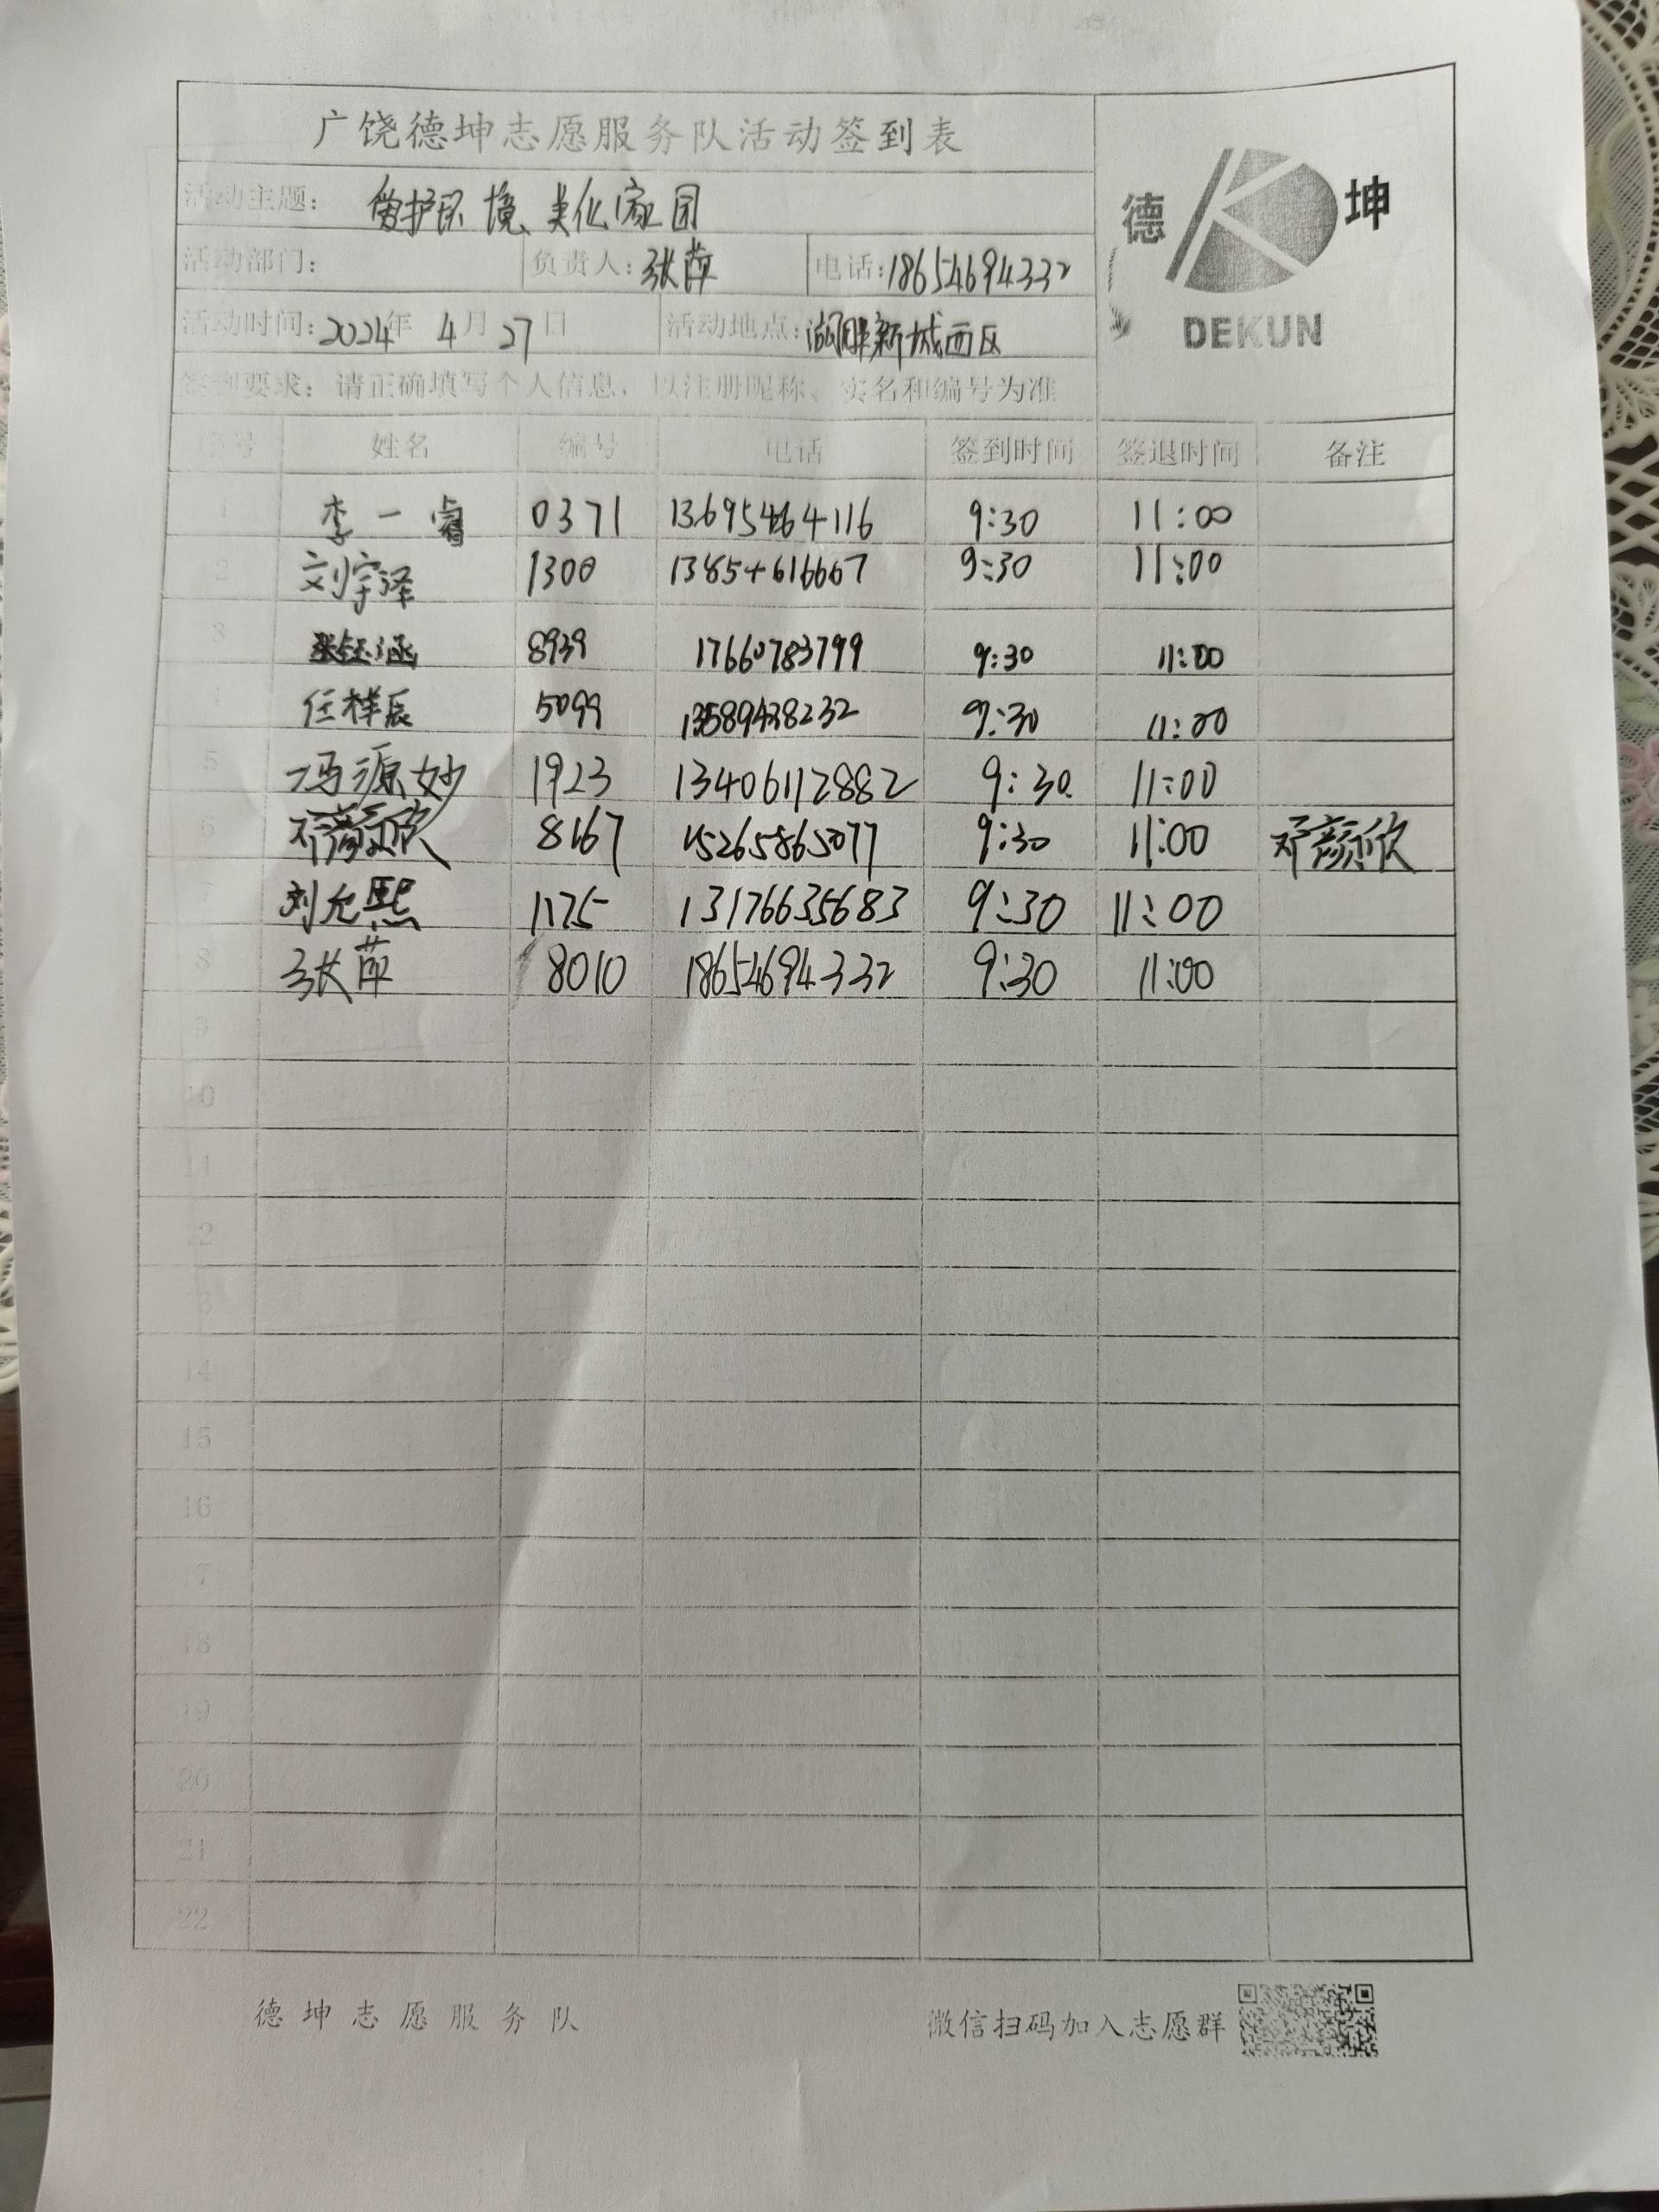 广饶德坤志愿服务队活动签到表
德 坤
DEKUN
活动主题: 爱护环境、美化家园
活动部门: 负责人: 张萍 电话: 18654694332
活动时间: 2024年 4月 27日 活动地点: 新城西区
签到要求: 请正确填写个人信息, 以注册昵称、实名和编号为准
序号 姓名 编号 电话 签到时间 签退时间 备注
1 李一睿 0371 13695464116 9:30 11:00
2 刘宇泽 1300 9:30 11:00
3 张钰涵 8939 17660783799 9:30 11:00
4 任祥辰 5099 13589428232 9:30 11:00
5 冯源妙 1923 13406112882 9:30 11:00
6 邓颜欣 8167 15265865077 9:30 11:00 邓颜欣
7 刘允熙 1175 13176635683 9:30 11:00
8 张萍 8010 18654694332 9:30 11:00
9
10
11
12
13
14
15
16
17
18
19
20
21
22
德坤志愿服务队 微信扫码加入志愿群